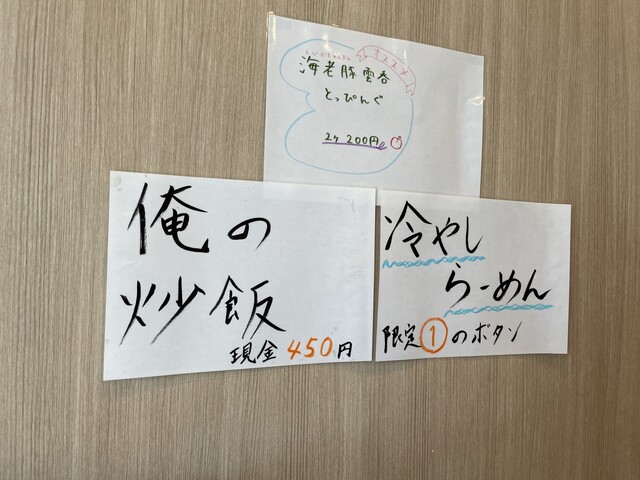 オススメ
えびぶたわんたん
海老豚雲呑
とっぴんぐ
2ヶ 200円
俺の
炒飯
現金 450円
冷やし
らーめん
限定①のボタン